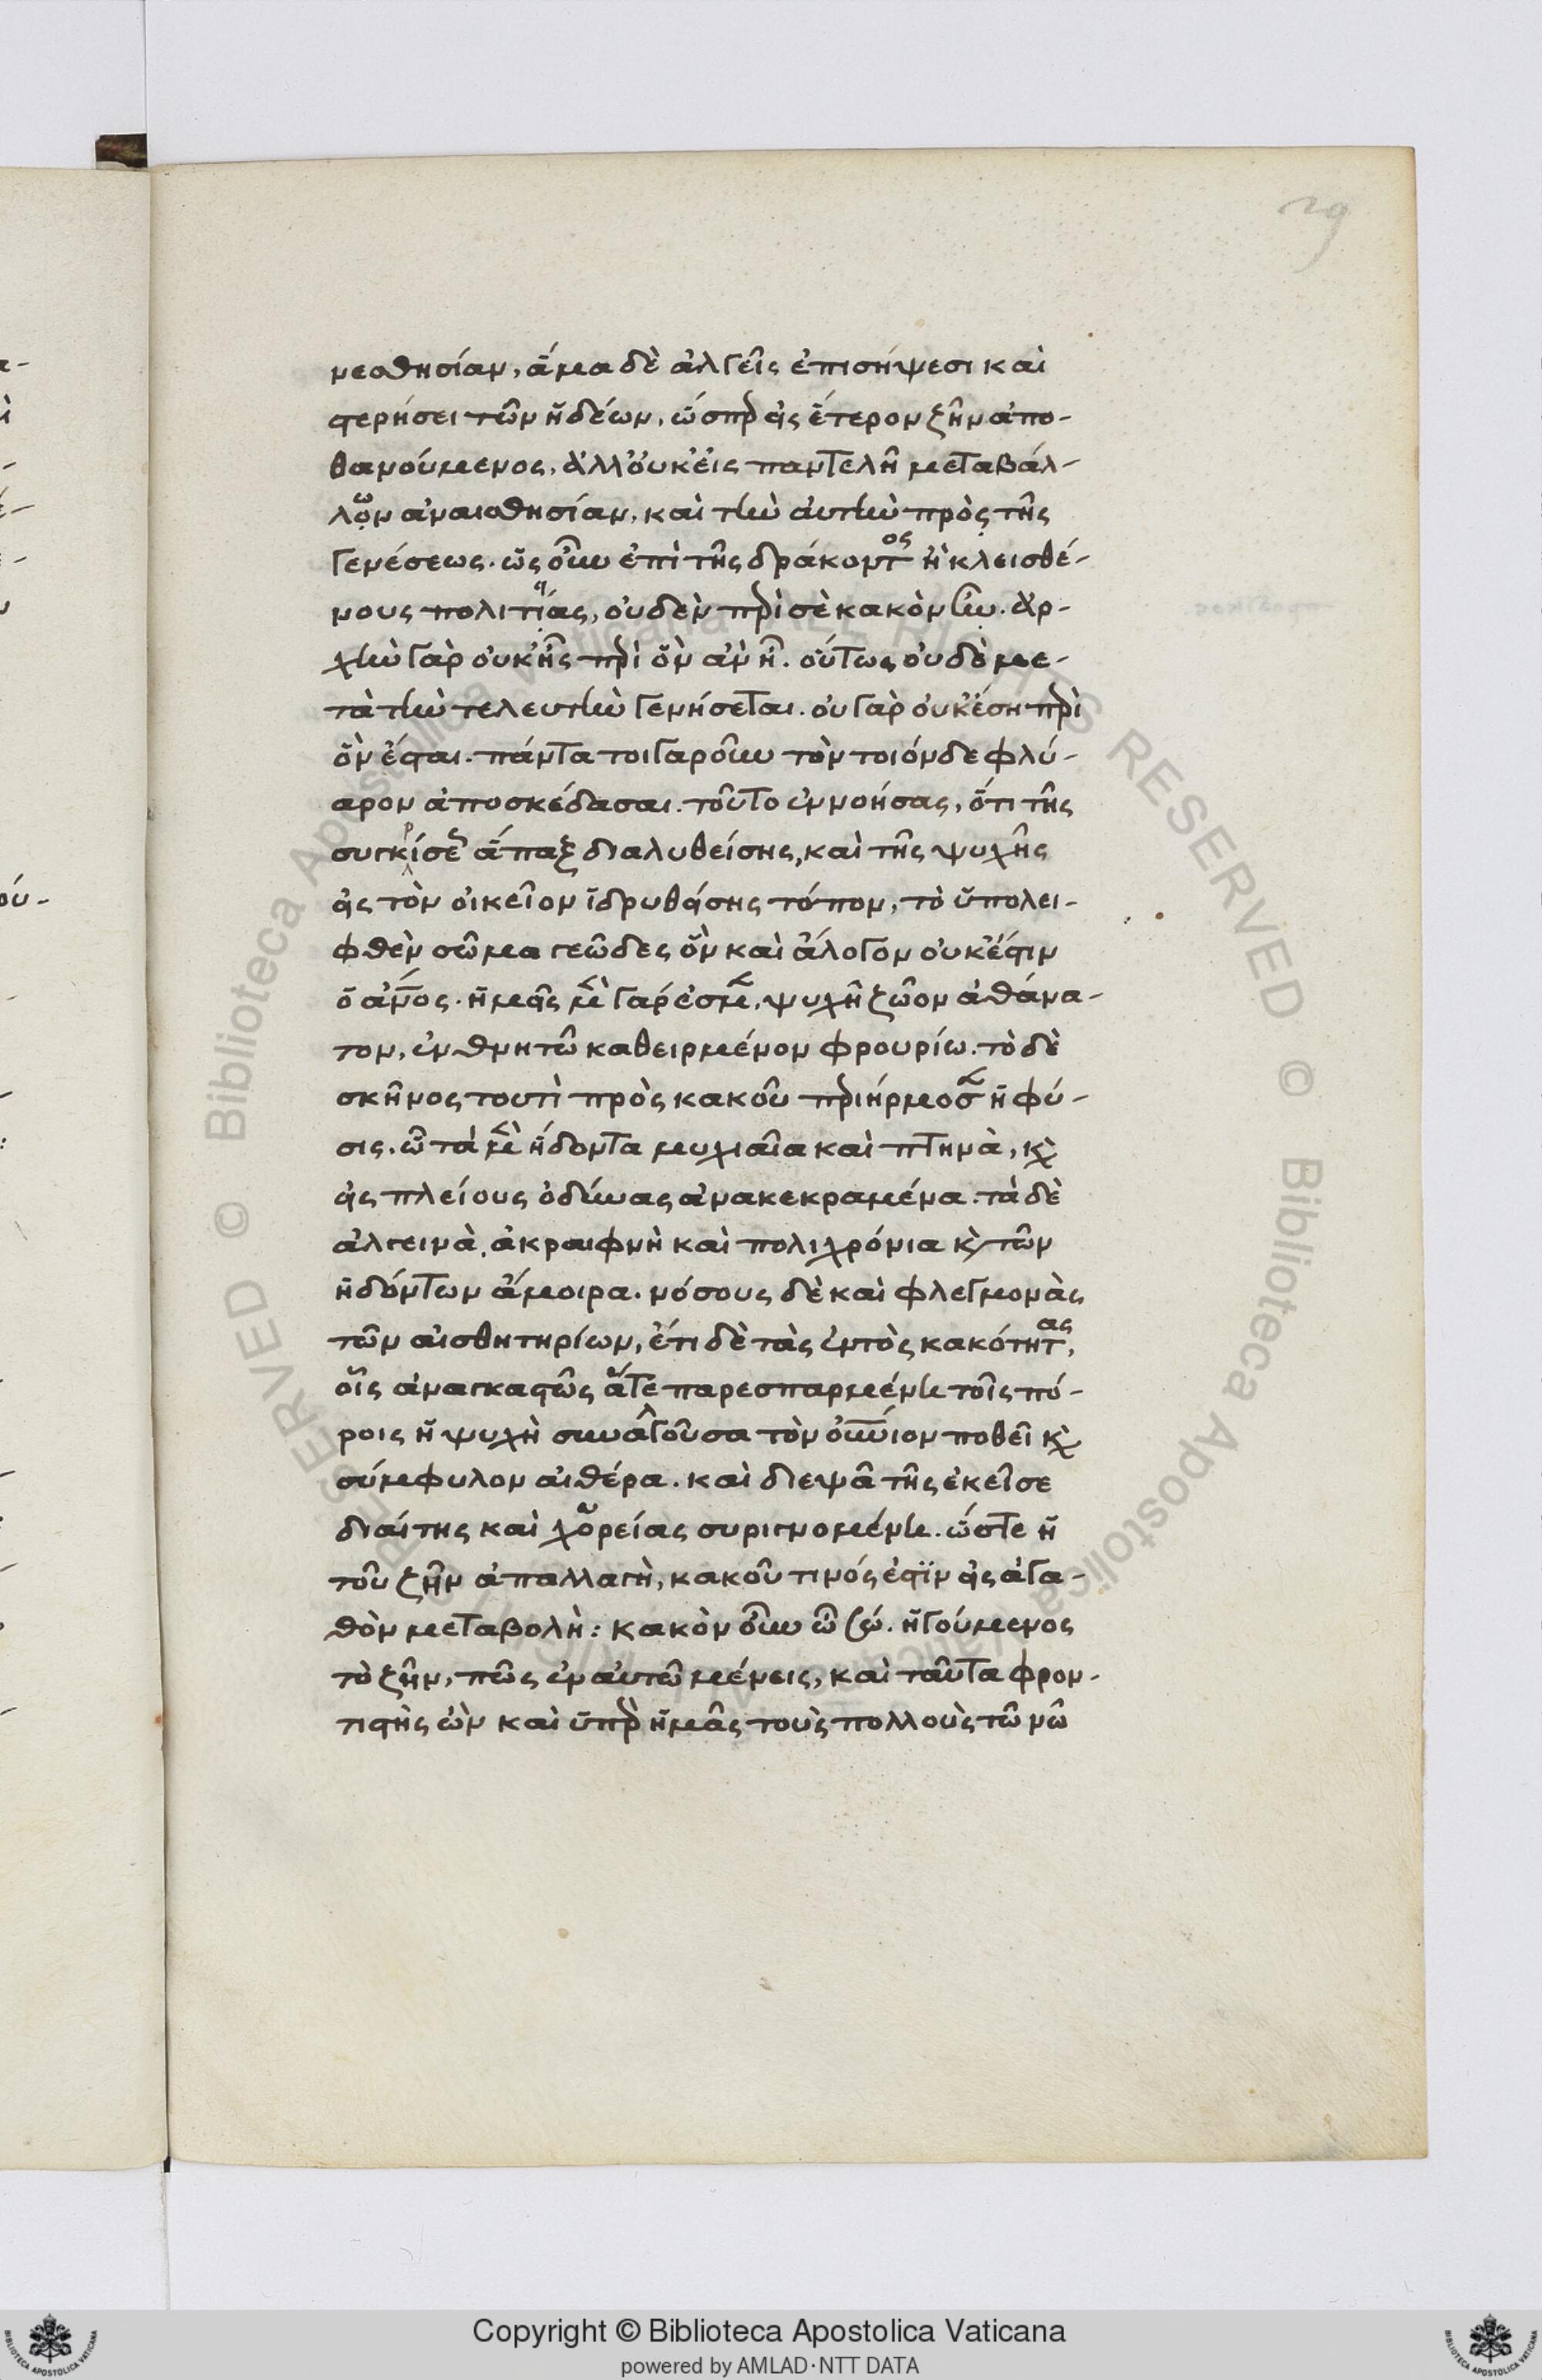 29
νεσθησίαν, ἅμα δὲ ἀλγεῖς ἐπισήψεσι καὶ
στερήσει τῶν ἡδέων, ὥσπερ εἰς ἕτερον ζῆν ἀπο-
θανούμενος, ἀλλ' οὐκ εἰς παντελῆ μεταβάλ-
λων ἀναισθησίαν, καὶ τὴν αὐτὴν πρὸς τῆς
γενέσεως. ὡς οὖν ἐπὶ τῆς δράκοντος ἢ κλεισθέ-
νους πολιτείας, οὐδὲν περὶ σὲ κακὸν ἦν. ἀρ-
χὴν γὰρ οὐκ ἦς περὶ ὃν ἂν ἦ. οὕτως οὐδὲ με-
τὰ τὴν τελευτὴν γενήσεται. οὐ γὰρ οὐκ ἔση περὶ
ὃν ἔσται. πάντα τοιγαροῦν τὸν τοιόνδε φλύ-
αρον ἀποσκέδασαι. τοῦτο ἐννοήσας, ὅτι τῆς
συγκρίσεως ἅπαξ διαλυθείσης, καὶ τῆς ψυχῆς
εἰς τὸν οἰκεῖον ἱδρυθείσης τόπον, τὸ ὑπολει-
φθὲν σῶμα γεῶδες ὂν καὶ ἄλογον οὐκ ἔστιν
ὁ ἄνος. ἡμεῖς μὲν γάρ ἐσμεν, ψυχὴ ζῶον ἀθάνα-
τον, ἐν θνητῶ καθειργμένον φρουρίω. τὸ δὲ
σκῆνος τουτὶ πρὸς κακοῦ περιήρμοσεν ἡ φύ-
σις. ὧ τὰ μὲν ἥδοντα μυχιαῖα καὶ πτηνὰ, κ̀
εἰς πλείους ὀδύνας ἀνακεκραμένα. τὰ δὲ
ἀλγεινὰ, ἀκραιφνῆ καὶ πολιχρόνια κ̀ τῶν
ἡδόντων ἄμοιρα. νόσους δὲ καὶ φλεγμονὰς
τῶν αἰσθητηρίων, ἔτι δὲ τὰς ἐντὸς κακότητας,
οἷς ἀναγκαστῶς ἅτε παρεσπαρμένη τοῖς πό-
ροις ἡ ψυχὴ συναλγοῦσα τὸν οὐνιον ποθεῖ κ̀
σύμφυλον αἰθέρα. καὶ διεψᾶ τῆς ἐκεῖσε
διαίτης καὶ χορείας συριγνομένη. ὥστε ἡ
τοῦ ζῆν ἀπαλλαγὴ, κακοῦ τινός ἐστϊν εἰς ἀγα-
θὸν μεταβολή: κακὸν οὖν ὦ σώ. ἡγούμενος
τὸ ζῆν, πῶς ἐν αὐτῶ μένεις, καὶ ταῦτα φρον-
τιστὴς ὢν καὶ ὑπὲρ ἡμᾶς τοὺς πολλοὺς τῶ νῶ
Copyright © Biblioteca Apostolica Vaticana
powered by AMLAD·NTT DATA